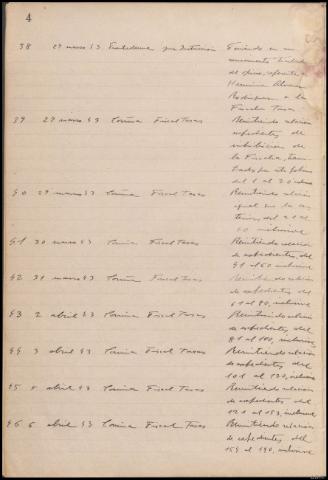 4
38 27 marzo 43
Hermina Alvarez
Rodriguez a la
Fiscalia Tasas
89 27 marzo 43 Coruña Fiscal Tasas Remitiendo relacion
expedientes de
de la Fiscalia,
del 1 al 20
90 29 marzo 43 Coruña Fiscal Tasas Remitiendo
igual que la an
terior, del 21 al
40 inclusive
91 30 marzo 43 Coruña Fiscal Tasas Remitiendo relacion
de expedientes, del
41 al 60 inclusive
92 31 marzo 43 Coruña Fiscal Tasas Remitiendo relacion
de expedientes del
61 al 80, inclusive
93 2 abril 43 Coruña Fiscal Tasas Remitiendo relacion
de expedientes, del
81 al 100, inclusive
94 3 abril 43 Coruña Fiscal Tasas Remitiendo relacion
de expedientes, del
101 al 120, inclusive
95 5 abril 43 Coruña Fiscal Tasas Remitiendo relacion
de expedientes del
121 al 153, inclusive
96 6 abril 43 Coruña Fiscal Tasas Remitiendo relacion
de expedientes del
154 al 190, inclusive